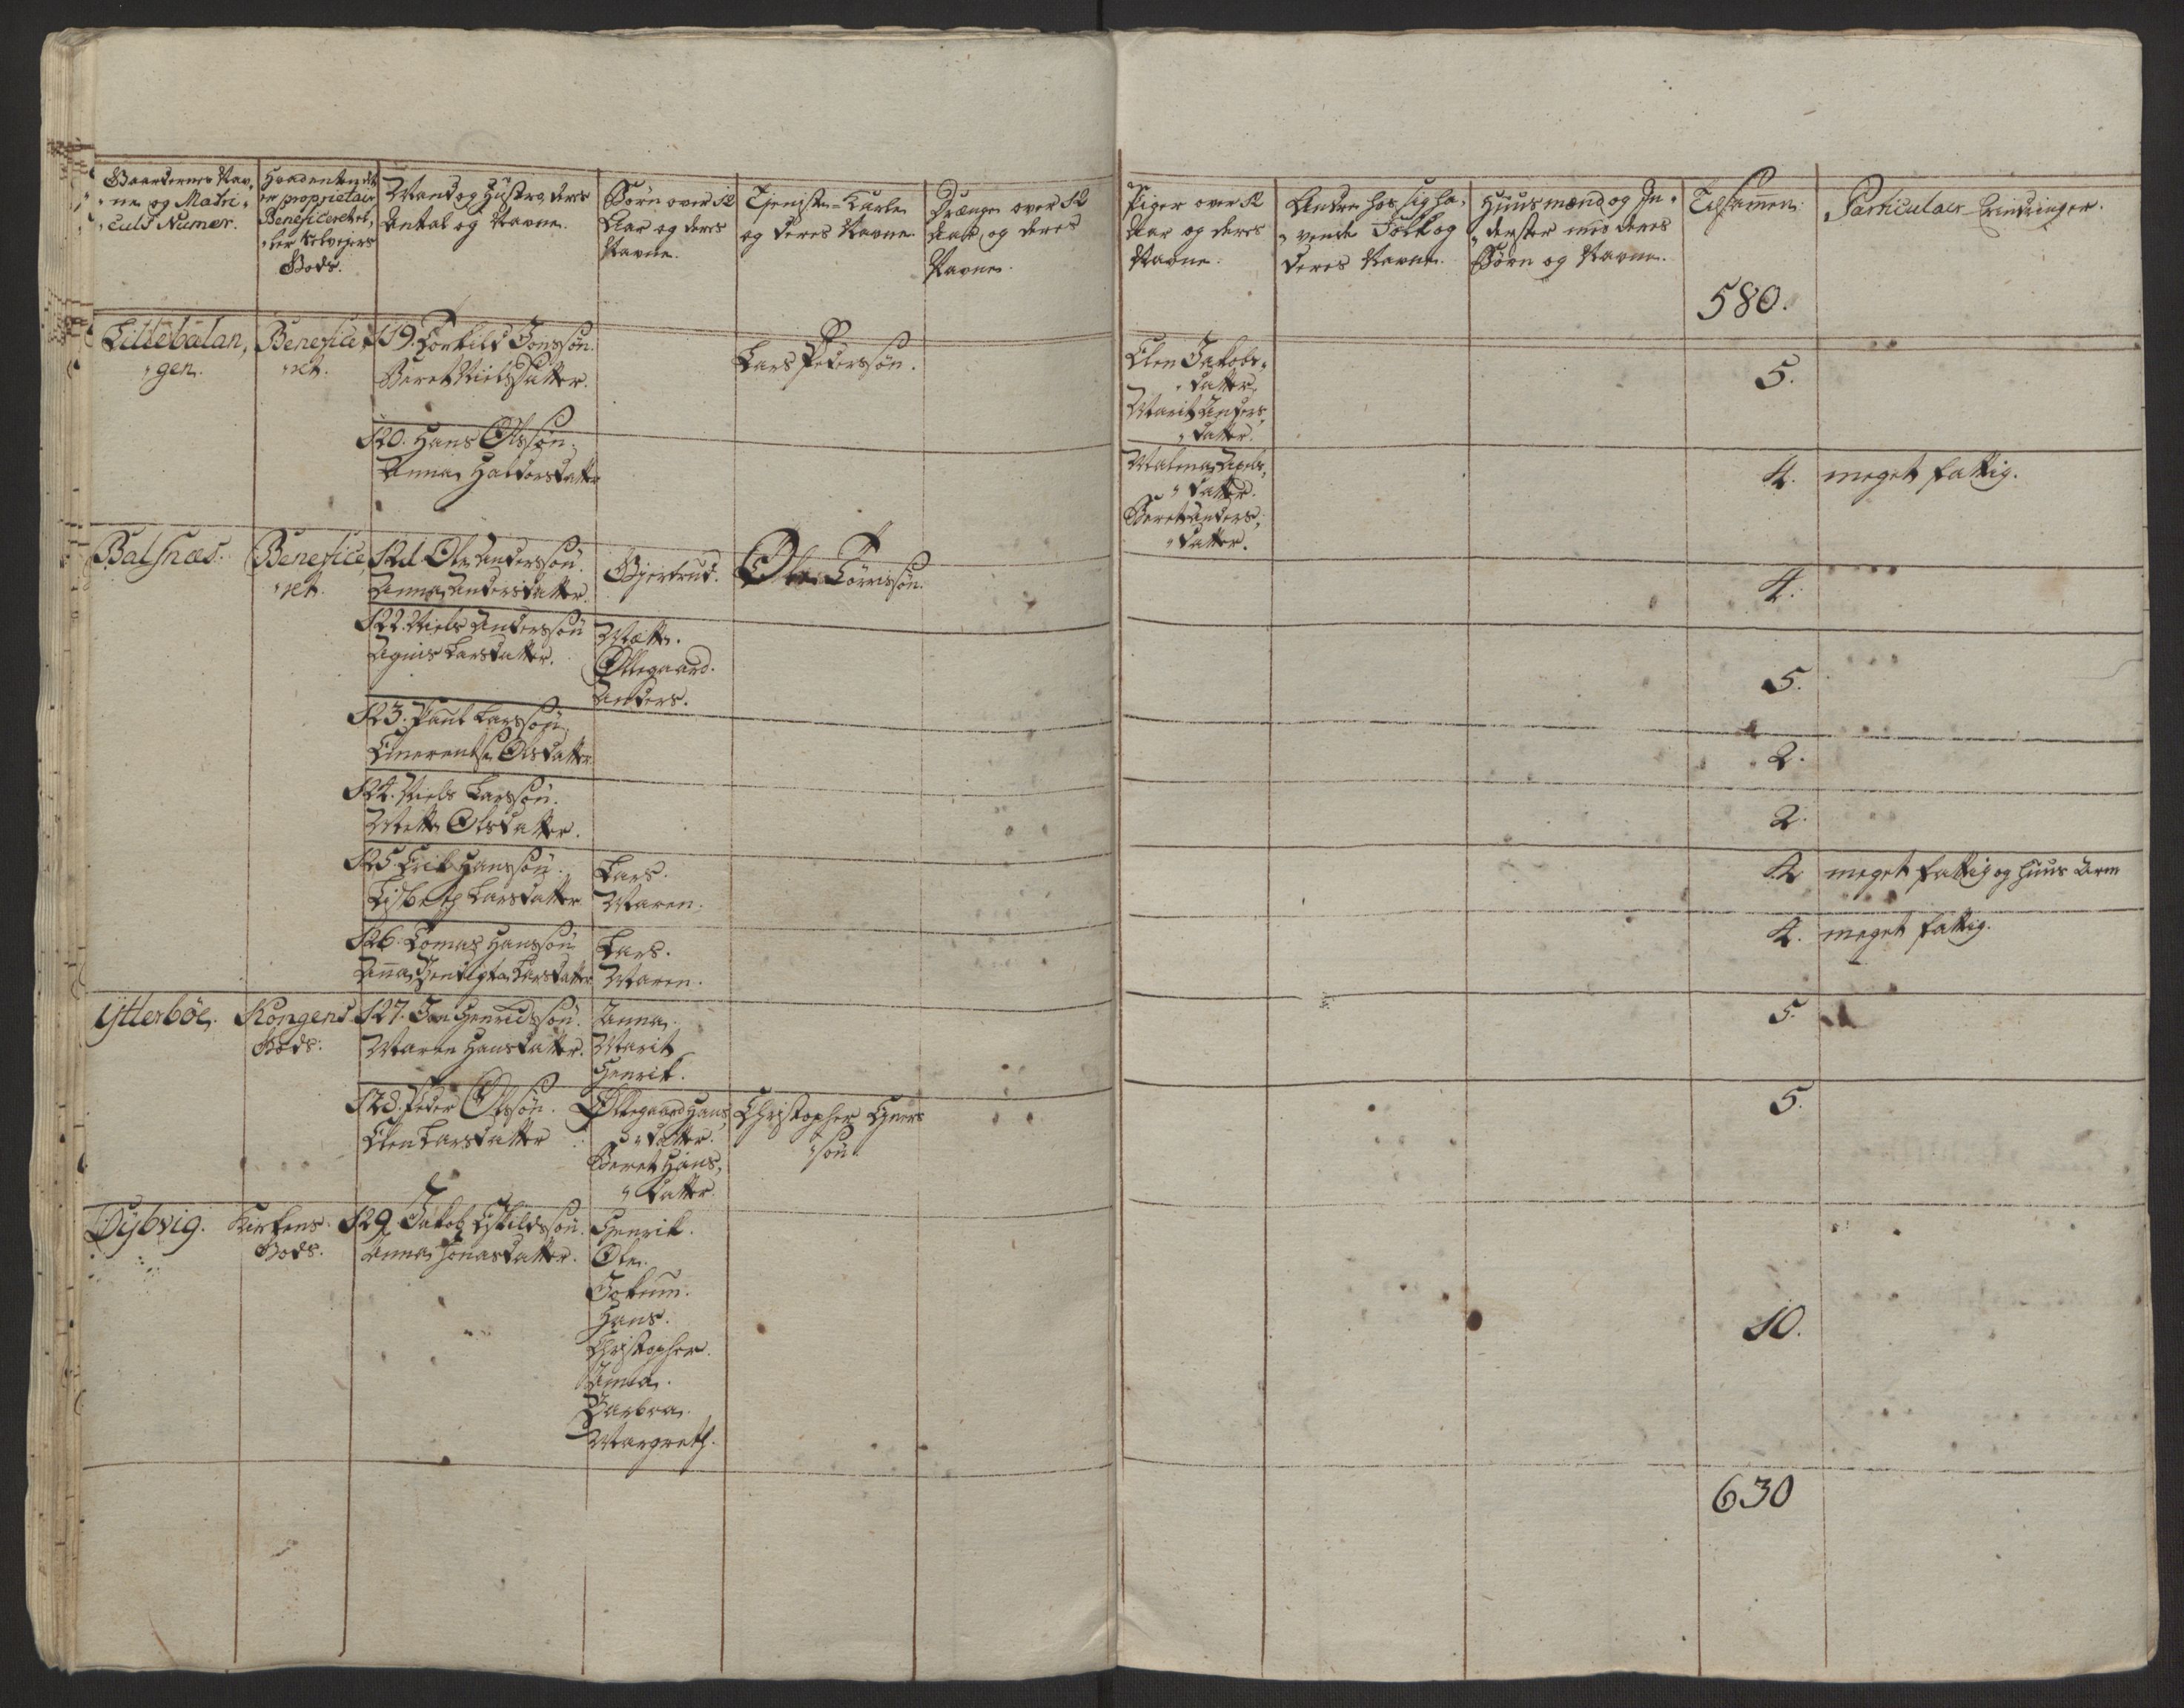 Gaardernes Nav,
"ne og Matri,
"culs Numer.
Hvad enten det
er proprietair
Beneficeret el,
"ler Selvejers
Gods.
Mand og Hustro, deres
Antal og Navne.
Børn over 12
Aar og deres
Navne.
Tjeniste-Karle
og deres Navne.
Drænge over 12
Aar, og deres
Navne.
Piger over 12
Aar og deres
Navne.
Andre hos sig ha,
"vende Folk og
deres Navne.
Huusmænd og In,
"derster med deres
Børn og Navne.
Tilsamen.
Particulair
580.
Lillebalan,
"gen.
Benefice,
"ret.
119. Torkild Jonssøn.
Beret Nielsdatter.
Lars Pederssøn.
Elen Jakobs,
"datter.
Marit Anders,
"datter.
5.
120. Hans Olssøn.
Anna Haldorsdatter
Malena
"datter.
Beret Anders,
"datter.
4. meget fattig.
Balsnæs.
Benefice,
"ret.
121. Ole Anderssøn.
Anna Andersdatter.
Gjertrud.
Ole Tørrissøn.
4.
122. Niels Anderssøn
Agnis Larsdatter.
Mætte.
Ollegaard.
Anders.
5.
123. Paul Larssøn,
Emerentse Olsdatter.
2.
124. Niels Larssøn.
Mette Olsdatter.
2.
125. Erik Hanssøn.
Lisbeth Larsdatter
Lars.
Maren.
4 meget fattig og huus Arm
126. Tomas Hanssøn
Anna Larsdatter
Lars.
Maren.
4. meget fattig.
Ytterböe.
Kongens
Gods.
127. Jon Henrichssøn.
Maren Hansdatter.
Anna.
Marit
Henrik.
5.
128. Peder Olssøn.
Elen Larsdatter
Ollegaard Hans,
"datter.
Beret Hans,
"datter.
Christopher Ejners
"søn
5.
Dybvig.
Kirkens
Gods.
129. Jakob Eskildssøn.
Anna Jonasdatter.
Henrik.
Ole.
Jokum.
Hans.
Christopher.
Anna.
Barbra.
Margreth.
10.
630